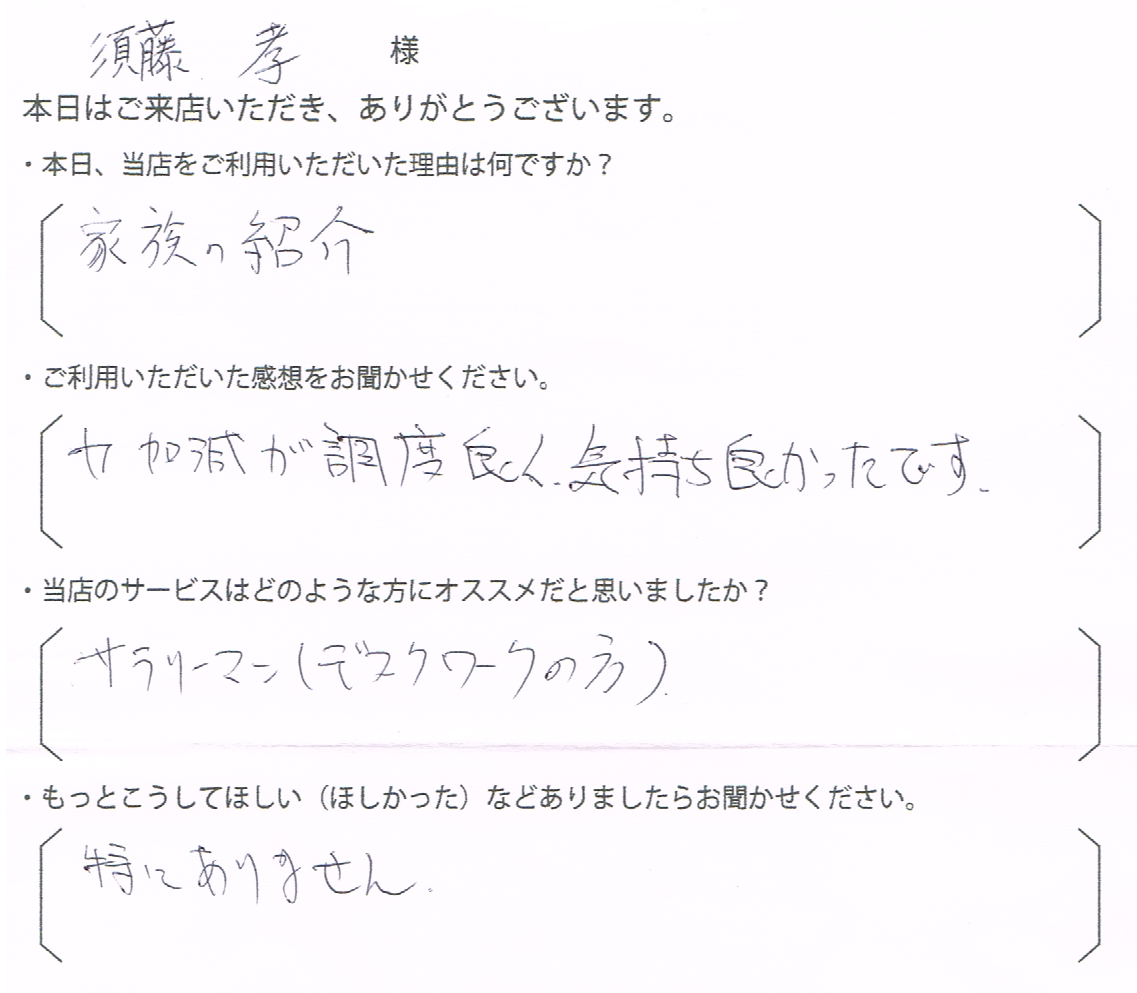 須藤 孝 様
本日はご来店いただき、ありがとうございます。
・本日、当店をご利用いただいた理由は何ですか？
家族の紹介
・ご利用いただいた感想をお聞かせください。
力加減が調度良く、気持ち良かったです。
・当店のサービスはどのような方にオススメだと思いましたか？
サラリーマン(デスクワークの方).
・もっとこうしてほしい（ほしかった）などありましたらお聞かせください。
特にありません.